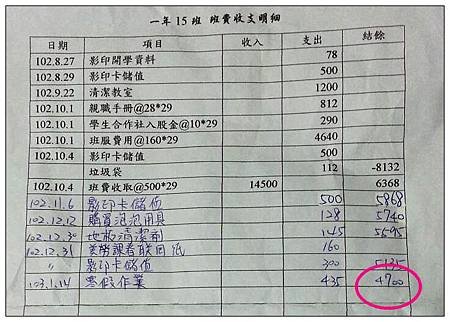 一年15班 班費收支明細
日期 項目 收入 支出 結餘
102.8.27 影印開學資料 78
102.8.29 影印卡儲值 500
102.9.22 清潔教室 1200
102.10.1 親職手冊@28*29 812
102.10.1 學生合作社入股金@10*29 290
102.10.1 班服費用@160*29 4640
102.10.4 影印卡儲值 500
垃圾袋 112 -8132
102.10.4 班費收取@500*29 14500 6368
102.11.6 影印卡儲值 500 5868
102.12.12 購買泡泡用具 128 5740
102.12.30 地板清潔劑 145 5595
102.12.31 美勞課春聯用紙 160
〃 影印卡儲值 300 5135
103.1.14 寒假作業 435 4700